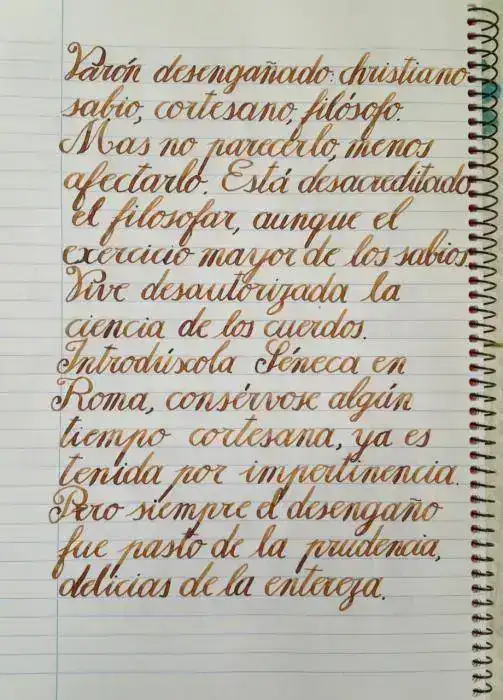 Varón desengañado: christiano
sabio, cortesano, filósofo.
Mas no parecerlo, menos
afectarlo. Está desacreditado
el filosofar, aunque el
exercicio mayor de los sabios.
Vive desautorizada la
ciencia de los cuerdos.
Introdúxola Séneca en
Roma, consérvose algún
tiempo cortesana, ya es
tenida por impertinencia.
Pero siempre el desengaño
fue pasto de la prudencia,
delicias de la entereza.